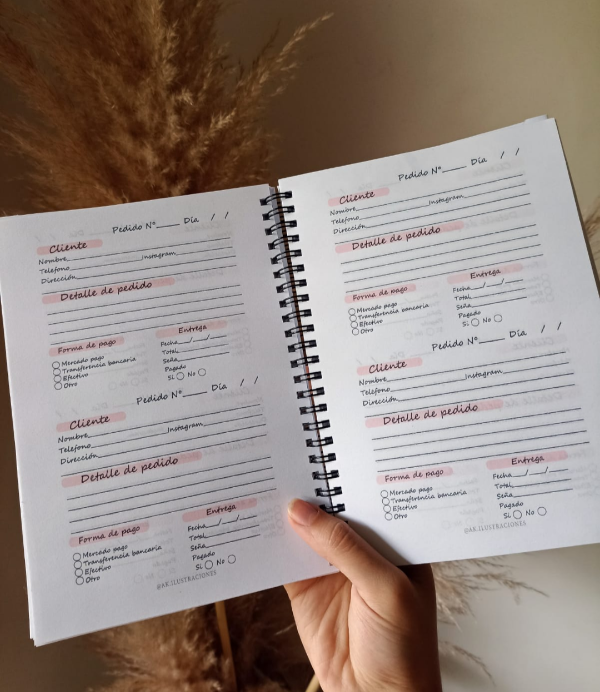 Pedido N°_____ Día / /
Cliente
Nombre
Telefono Instagram
Dirección
Detalle de pedido
Forma de pago Entrega
Mercado pago Fecha___/___/___
Transferencia bancaria Total
Efectivo Seña
Otro Pagado
Si No
Pedido N°_____ Día / /
Cliente
Nombre
Telefono Instagram
Dirección
Detalle de pedido
Forma de pago Entrega
Mercado pago Fecha___/___/___
Transferencia bancaria Total
Efectivo Seña
Otro Pagado
Si No
@AR.ILUSTRACIONES
Pedido N°_____ Día / /
Cliente
Nombre
Telefono Instagram
Dirección
Detalle de pedido
Forma de pago Entrega
Mercado pago Fecha___/___/___
Transferencia bancaria Total
Efectivo Seña
Otro Pagado
Si No
Pedido N°_____ Día / /
Cliente
Nombre
Telefono Instagram
Dirección
Detalle de pedido
Forma de pago Entrega
Mercado pago Fecha___/___/___
Transferencia bancaria Total
Efectivo Seña
Otro Pagado
Si No
@AR.ILUSTRACIONES